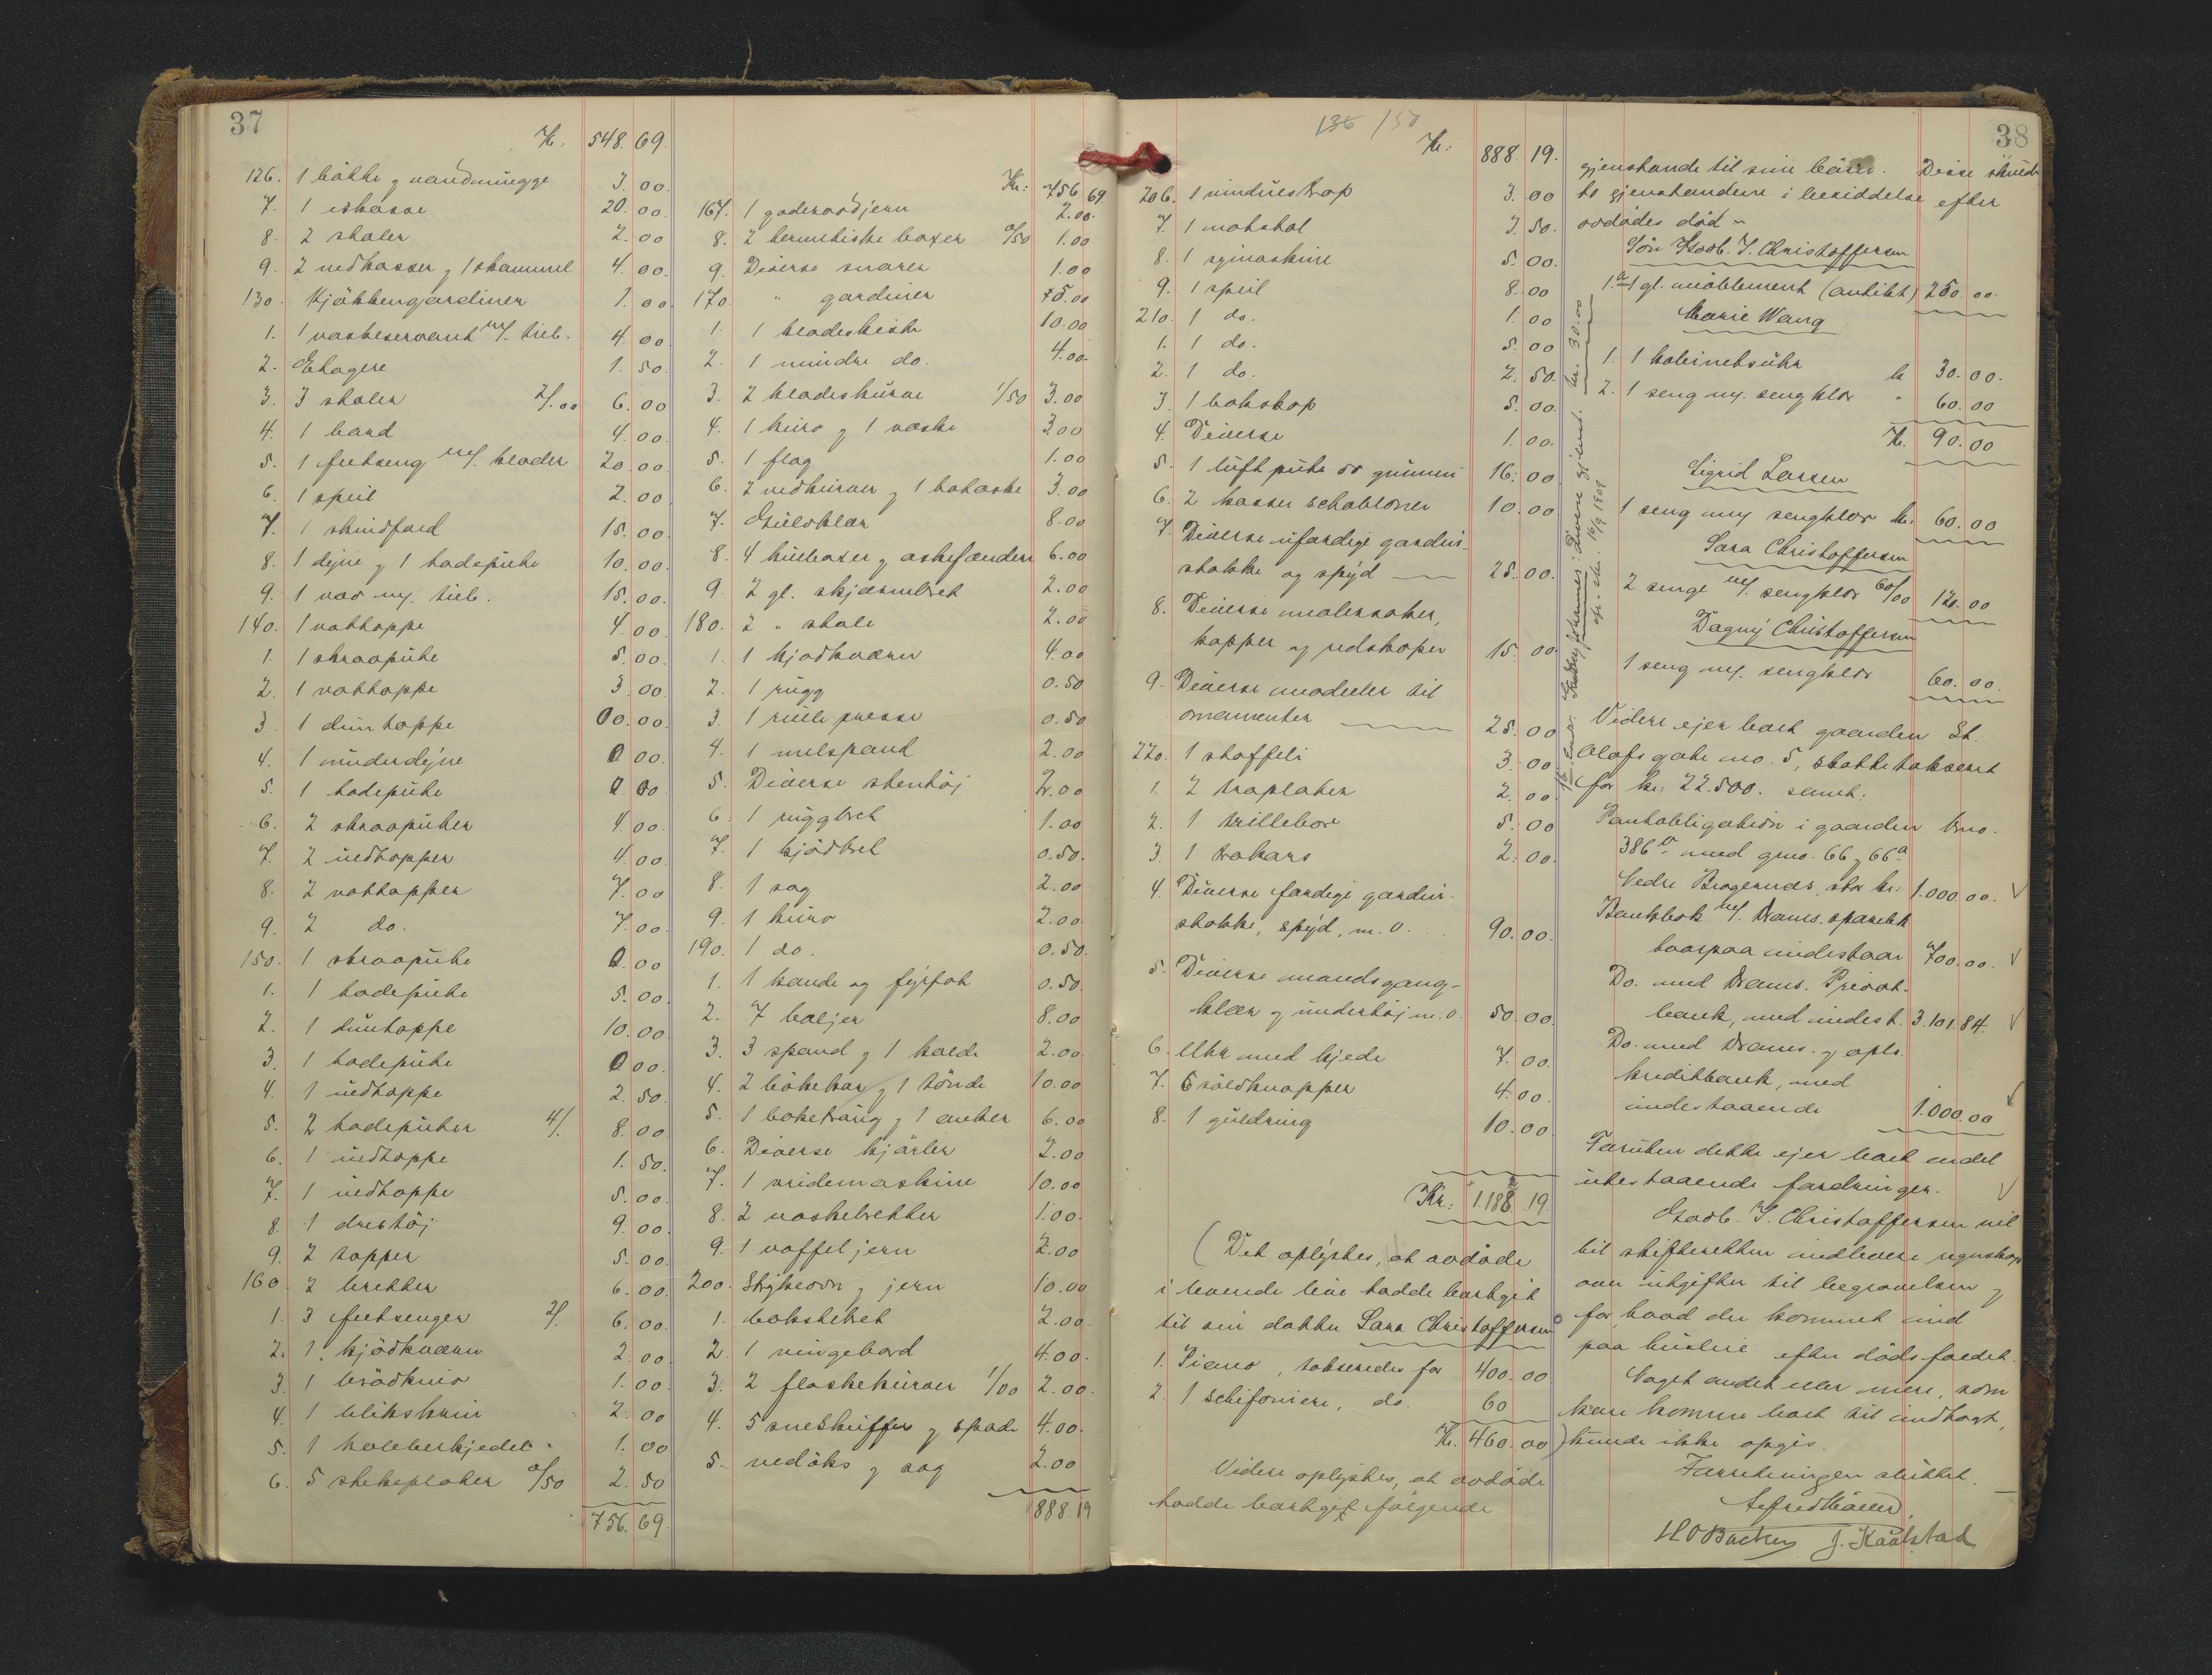 37
Kr. 548.69.
126. 1 bötte og vandmugge 3.00
7. 1 iskasse 20.00
8. 2 stoler 2.00
9. 2 vedkasser og 1 skammel 4.00
130. Kjökkengardiner 1.00
1. 1 vaskeservant m/. tilb. 4.00
2. Etagere 1.50
3. 3 stoler 2/.00 6.00
4. 1 bord 4.00
5. 1 feltseng m/. klæder 20.00
6. 1 speil 2.00
7. 1 skindfæld 15.00
8. 1 dyne og 1 hodepute 10.00
9. 1 væv m/. tilb. 15.00
140. 1 vatteppe 4.00
1. 1 skraapute 5.00
2. 1 vatteppe 3.00
3. 1 dunteppe 00.00
4. 1 underdyne 0.00
5. 1 hodepute 0.00
6. 2 skraaputer 4.00
7. 2 uldtepper 4.00
8. 2 vattepper 7.00
9. 2 do. 7.00
150. 1 skraapute 0.00
1. 1 hodepute 5.00
2. 1 dunteppe 10.00
3. 1 hodepute 0.00
4. 1 uldteppe 2.50
5. 2 hodeputer 4/. 8.00
6. 1 uldteppe 1.50
7. 1 uldteppe 5.00
8. 1 drestöj 9.00
9. 2 tepper 5.00
160. 2 bretter 6.00
1. 3 feltsenger 2/. 6.00
2. 1 kjödkværn 2.00
3. 1 brödkniv 1.00
4. 1 blikskrin 2.00
5. 1 kobberkjedel 1.00
6. 5 stekeplater 0/50 2.50
756.69
Kr: 756 69
167. 1 goderaadjern 2.00
8. 2 hermetiske boxer 0/50 1.00
9. Diverse snarer 1.00
170. " gardiner 75.00
1. 1 klædeskiste 10.00
2. 1 mindre do. 4.00
3. 2 klædeskurve 1/50 3.00
4. 1 kurv og 1 væske 3.00
5. 1 flag 1.00
6. 2 vedkurver og 1 kokaske 3.00
7. Gulvklær 8.00
8. 4 kulboxer og askefanden 6.00
9. 2 gl. skjærmbret 2.00
180. 2 " stole 2.00
1. 1 kjodkværn 4.00
2. 1 rugg 0.50
3. 1 rulle presse 0.50
4. 1 melspand 2.00
5. Diverse stentöj 2.00
6. 1 ruggbret 1.00
7. 1 kjödbret 0.50.
8. 1 sag 2.00
9. 1 kurv 2.00
190. 1 do. 0.50.
1. 1 kande og fyrfat 0.50.
2. 7 baljer 8.00
3. 3 spand og 1 balde 2.00
4. 2 bökekar og 1 tönde 10.00
5. 1 boketraug og 1 anker 6.00
6. Diverse kjörler 2.00
7. 1 vridemaskine 10.00
8. 2 vaskebretter 1.00.
9. 1 vaffeljern 2.00
200. Strykeovn og jern 10.00
1. bakstebret 2.00
2. 1 vingebord 4.00.
3. 2 flaskekurver 1/00 2.00.
4. 5 sneskuffer og spade 4.00.
5. vedöks og sag 2.00
888.19
136 /50
Kr: 888.19.
206. 1 vinduestrap 3.00
7. 1 matstol 3.50.
8. 1 symaskine 5.00.
9. 1 speil 8.00
210. 1 do. 1.00
1. 1 do. 5.00
2. 1 do. 2.50
3. 1 bokskap 5.00.
4. Diverse 1.00.
5. 1 luftpute av gummi 16.00
6. 2 kasser schabloner 10.00
7. Diverse ufærdige gardin-
stokke og spyd 25.00.
8. Diverse malersaker,
kopper og redskaper 15.00
9. Diverse modeller til
ornamenter 25.00
220. 1 staffeli 3.00
1. 2 traplater 2.00
2. 1 trillebör 5.00
3. 1 trakars 2.00.
4. Diverse færdige gardin-
stokke, spyd, m.v. 90.00.
5. Diverse mandsgang-
klær og undertöj m.v. 50.00
6. Uhr med kjede 7.00.
7. 6 söldknapper 4.00.
8. 1 guldring 10.00
Kr: 1.188 19
(Det oplystes, at avdöde
i levende live hadde bortgit
til sin datter Sara Christoffersen
1. Piano, takseredes for 400.00
2. 1 schifoniere, do. 60
Kr. 460.00)
Videre oplystes, at avdöde
hadde bortgit fölgende
38
gjenstande til sine börn. Disse skulde
ta gjenstandene i besiddelse efter
avdödes död
Sön Godb. J. Christoffersen
1. 1 gl. möblement (antikt) 250.00
Marie Wang
1. 1 kabinetsuhr kr 30.00.
2. 1 seng m/. sengklær " 60.00
Kr. 90.00
Sigrid Larsen
1 seng m/ sengklær kr. 60.00
Sara Christoffersen
2 senge m/. sengklær 60/00 120.00
Dagny Christoffersen
1 seng m/. sengklær 60.00.
Videre ejer boet gaarden St.
Olafs gate no. 5, skattetakseret
for kr: 22.500. samt:
Pantobligation i gaarden brno.
386 b med gno. 66 og 66 a
Nedre Bragernes, stor kr: 1.000.00.
Bankbok m/. Drams. sparebk
hvorpaa indestaar 700.00.
Do. med Drams. Privat-
bank, med indest. 3.101.84.
Do. med Drams. og opls.
kreditbank, med
indestaaende 1.000.00
Foruten dette ejer boet endel
utestaaende fordringer.
Godb. J. Christoffersen vil
til skifteretten indlevere regnskap
over utgifter til begravelsen og
for hvad der kommet ind
paa husleie efter dödsfaldet.
Noget andet eller mere, som
kan komme boet til indtægt,
kunde ikke opgis.
Forretningen sluttet.
J. Kaalstad